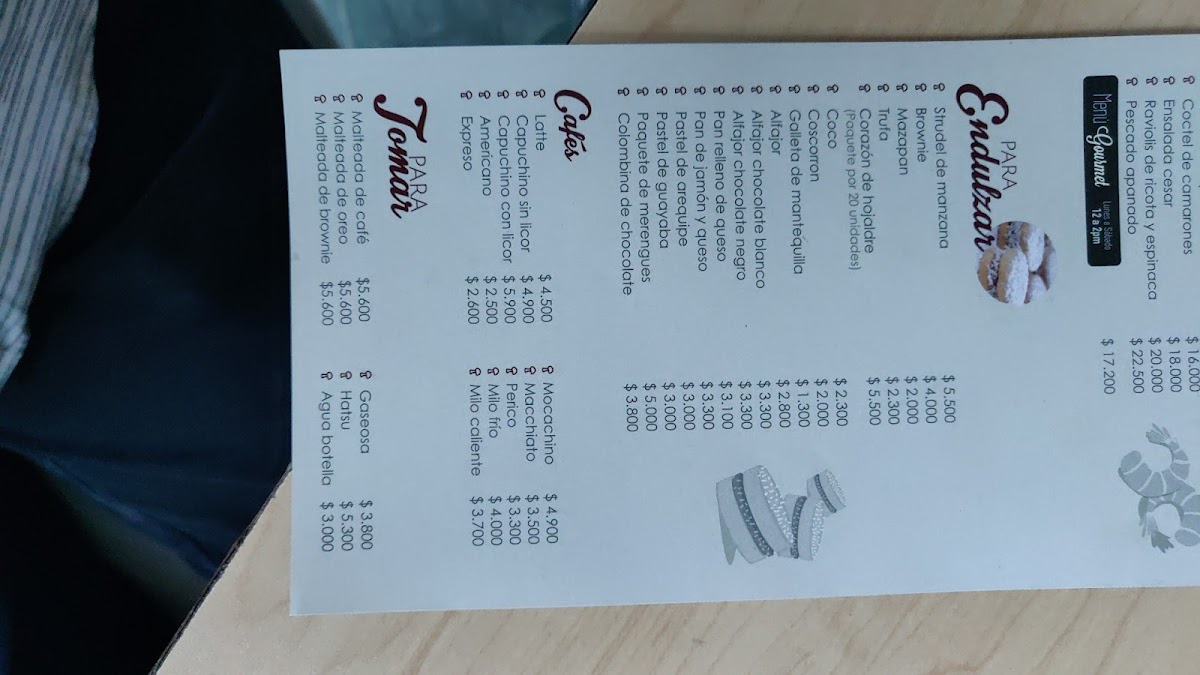 Coctel de camarones $ 16.000
Ensalada cesar $ 18.000
Raviolis de ricota y espinaca $ 20.000
Pescado apanado $ 22.500
Menú Gurmet Lunes a Sábado 12 a 2pm $ 17.200
PARA
Endulzar
Strudel de manzana $ 5.500
Brownie $ 4.000
Mazapan $ 2.000
Trufa $ 2.300
Corazón de hojaldre $ 5.500
(Paquete por 20 unidades)
Coco $ 2.300
Coscorron $ 2.000
Galleta de mantequilla $ 1.300
Alfajor $ 2.800
Alfajor chocolate blanco $ 3.300
Alfajor chocolate negro $ 3.300
Pan relleno de queso $ 3.100
Pan de jamón y queso $ 3.300
Pastel de arequipe $ 3.000
Pastel de guayaba $ 3.000
Paquete de merengues $ 5.000
Colombina de chocolate $ 3.800
Cafés
Latte $ 4.500 Mocachino $ 4.900
Capuchino sin licor $ 4.900 Macchiato $ 3.500
Capuchino con licor $ 5.900 Perico $ 3.300
Americano $ 2.500 Milo frío $ 4.000
Expreso $ 2.600 Milo caliente $ 3.700
PARA
Tomar
Malteada de café $5.600 Gaseosa $ 3.800
Malteada de oreo $5.600 Hatsu $ 5.300
Malteada de brownie $5.600 Agua botella $ 3.000